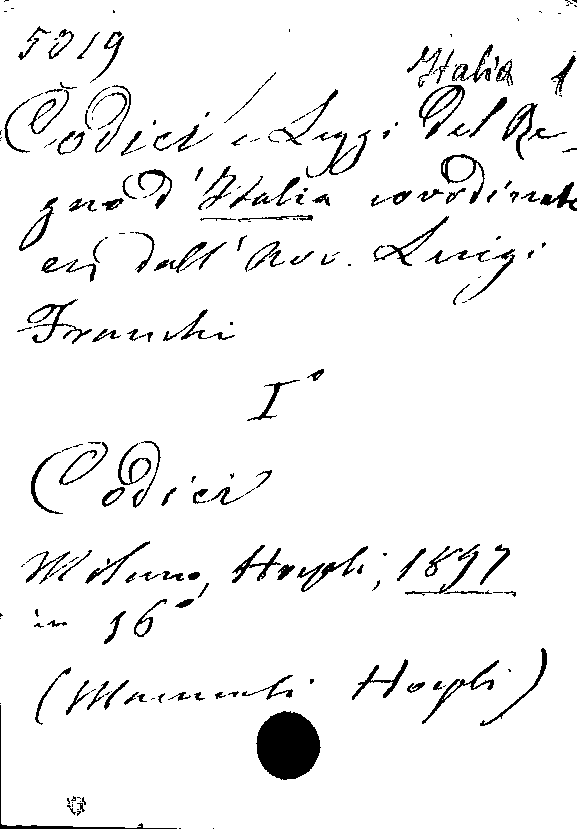 5019
Italia 1
Codici e Leggi del Re-
gno d'Italia coordinate
ed dall' Avv. Luigi
Franchi
I°
Codici
Milano, Hoepli, 1897
in 16°
(Manuali Hoepli)